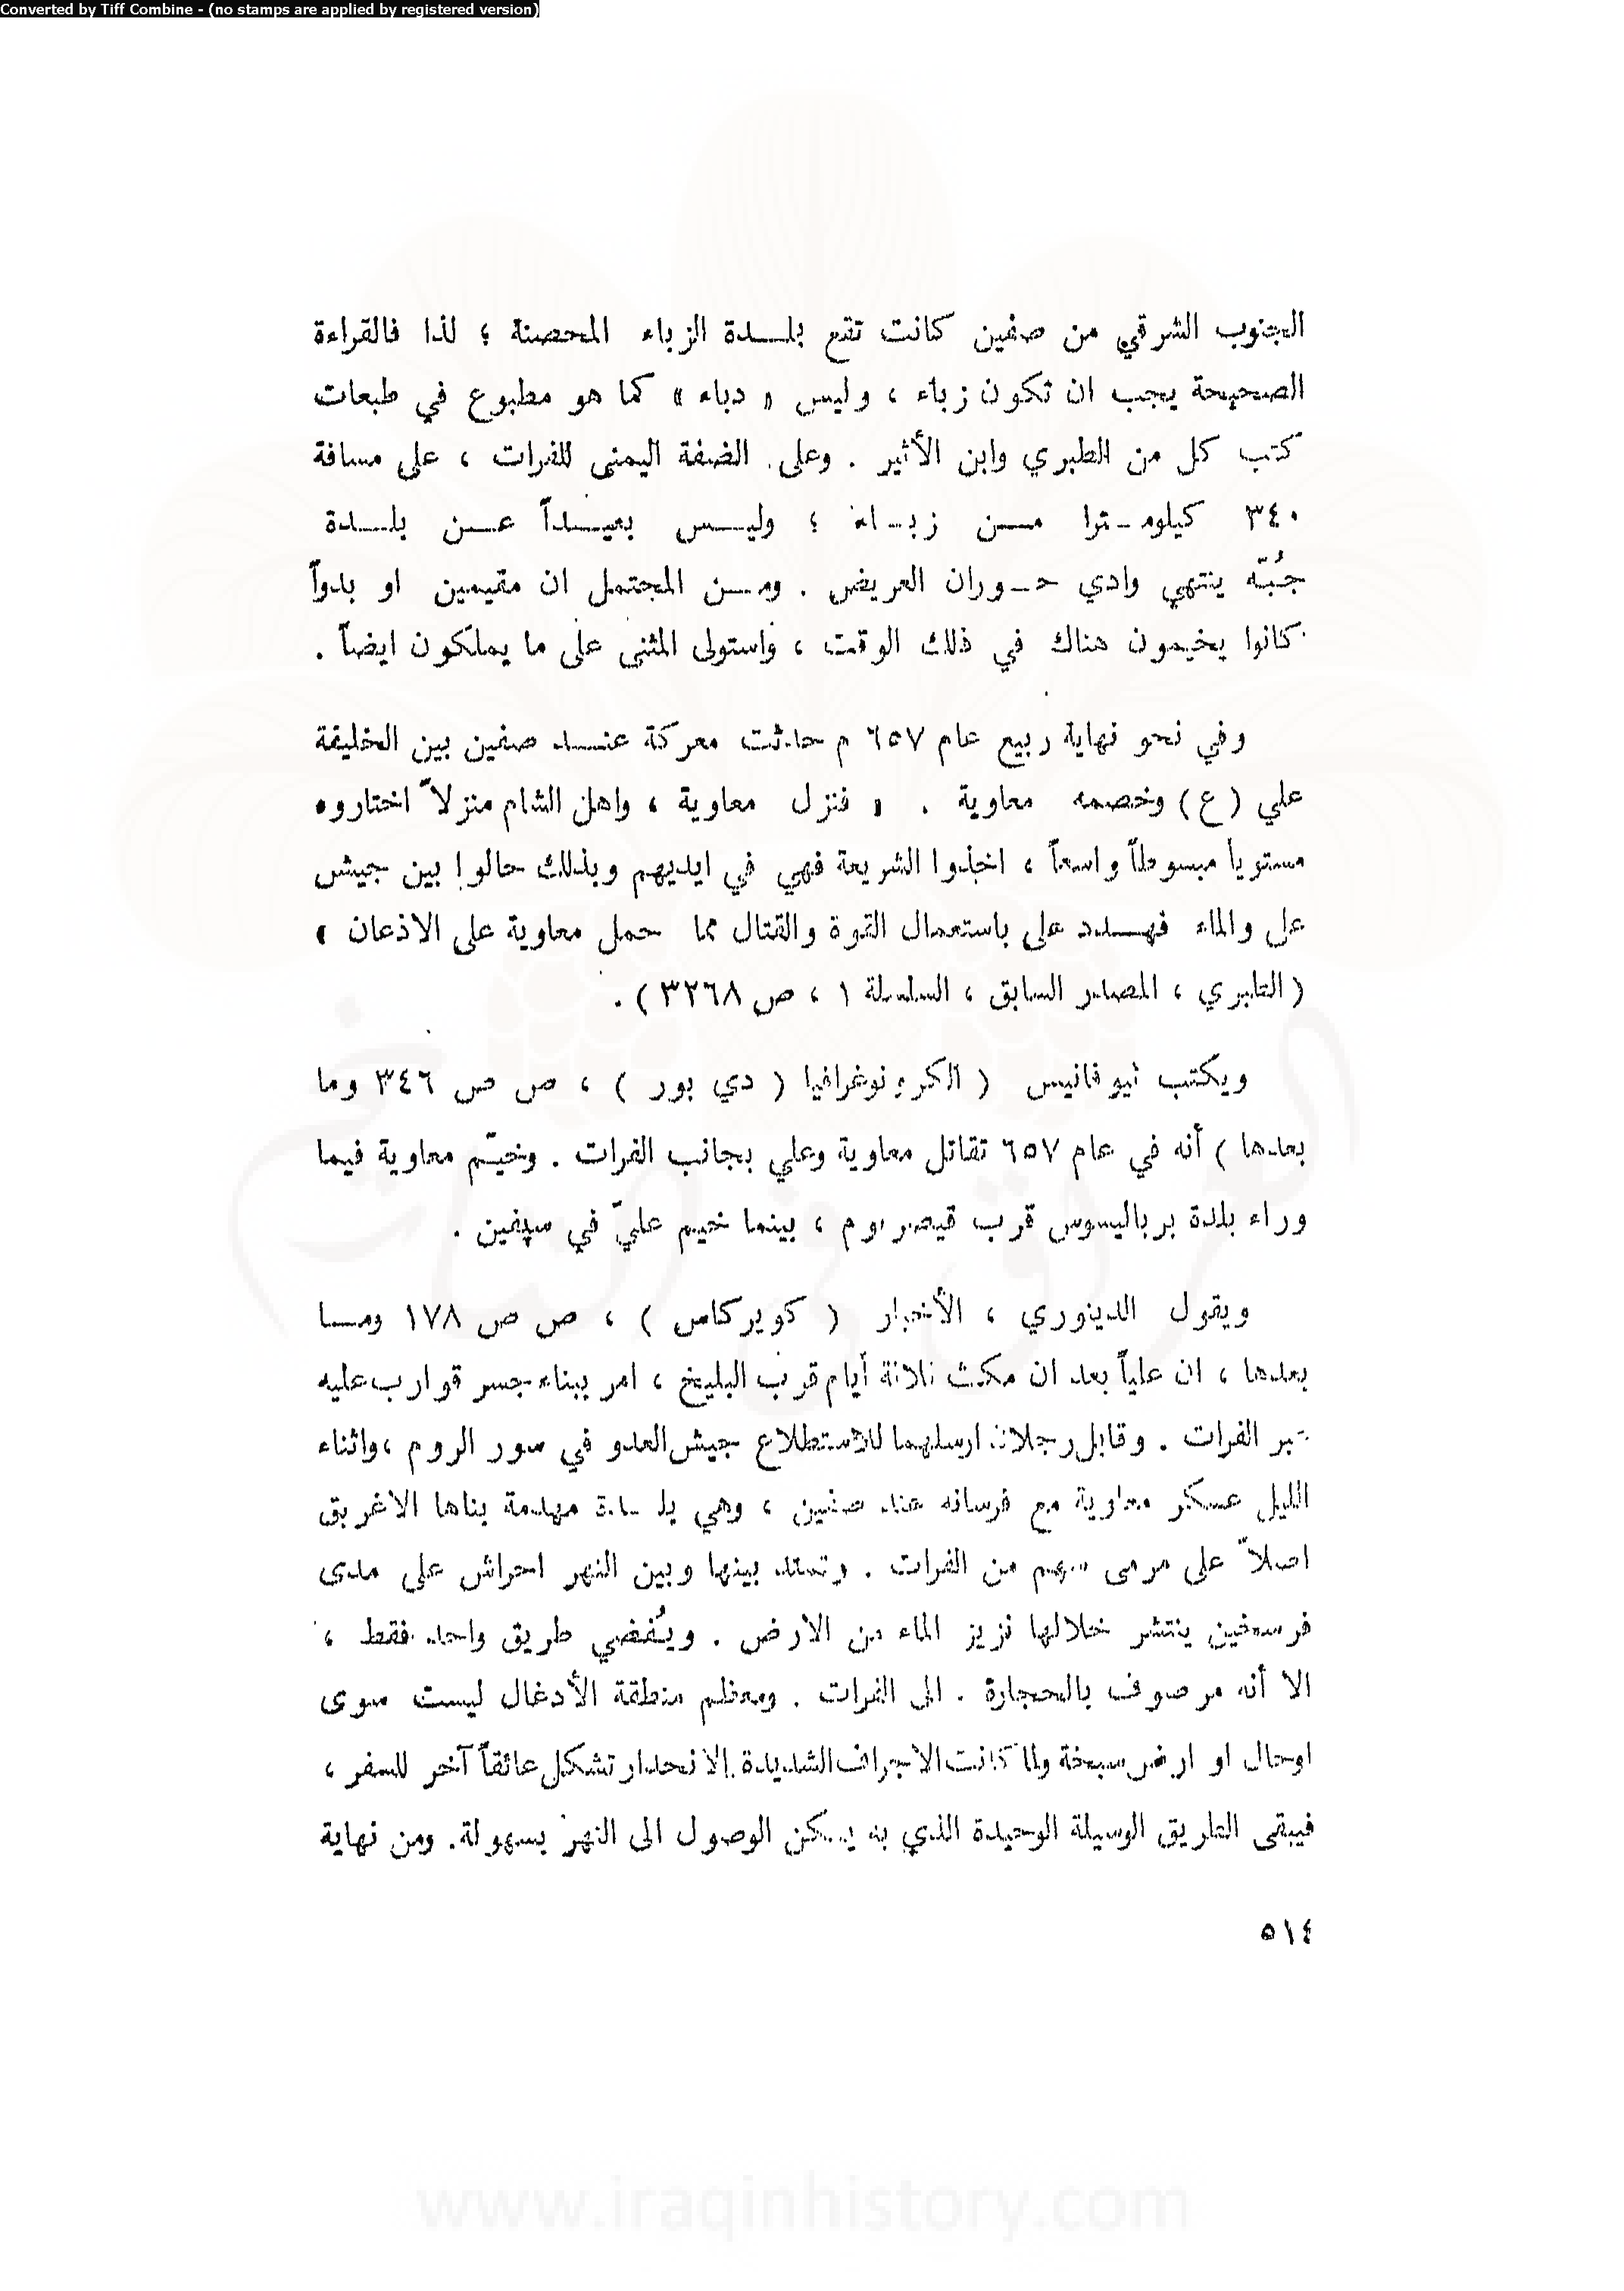 Converted by Tiff Combine - (no stamps are applied by registered version)
الجنوب الشرقي من صفين كانت تقع بلـــدة الزباء المحصنة ؛ لذا فالقراءة
الصحيحة يجب ان تكون زباء ، وليس « دباء » كما هو مطبوع في طبعات
كتب كل من الطبري وابن الأثير . وعلى الضفة اليمنى للفرات ، على مسافة
٣٤٠ كيلومـترا مــن زبـاء ؛ وليـــس بعيـــداً عــن بلـــدة
جُبّه ينتهي وادي حـوران العريض . ومــن المحتمل ان مقيمين او بدواً
كانوا يخيمون هناك في ذلك الوقت ، واستولى المثنى على ما يملكون ايضاً .
وفي نحو نهاية ربيع عام ٦٥٧ م حدثت معركة عنـــد صفين بين الخليفة
علي (ع) وخصمه معاوية . « فنزل معاوية ، واهل الشام منزلاً اختاروه
مستوياً مبسوطاً واسعاً ، اخذوا الشريعة فهي في ايديهم وبذلك حالوا بين جيش
علي والماء فهـــدد على باستعمال القوة والقتال مما حمل معاوية على الاذعان »
( الطبري ، المصدر السابق ، السلسلة ١ ، ص ٣٢٦٨ ) .
ويكتب ثيوفانيس ( الكرونوغرافيا ( دي بور ) ، ص ص ٣٤٦ وما
بعدها ) أنه في عام ٦٥٧ تقاتل معاوية وعلي بجانب الفرات . وخيّم معاوية فيما
وراء بلدة برباليسوس قرب قيصريوم ، بينما خيم عليّ في سپفين .
ويقول الدينوري ، الأخبار ( كويركاس ) ، ص ص ١٧٨ ومـــا
بعدها ، ان علياً بعد ان مكث ثلاثة أيام قرب البليخ ، امر ببناء جسر قوارب عليه
عبر الفرات . وقابل رجلان ارسلهما للاستطلاع جيش العدو في سور الروم ، واثناء
الليل عسكر معاوية مع فرسانه عند صفين ، وهي بلـــدة مهدمة بناها الاغريق
اصلاً على مرمى سهم من الفرات . وتمتد بينها وبين النهر احراش على مدى
فرسخين ينتشر خلالها نزيز الماء من الارض . ويُفضي طريق واحد فقط ،
الا أنه مرصوف بالحجارة . الى الفرات . ومعظم منطقة الأدغال ليست سوى
اوحال او ارض سبخة ولما كانت الاجراف الشديدة الانحدار تشكل عائقاً آخر للسفر ،
فيبقى الطريق الوسيلة الوحيدة الذي به يمكن الوصول الى النهر بسهولة. ومن نهاية
٥١٤
www.iraqinhistory.com